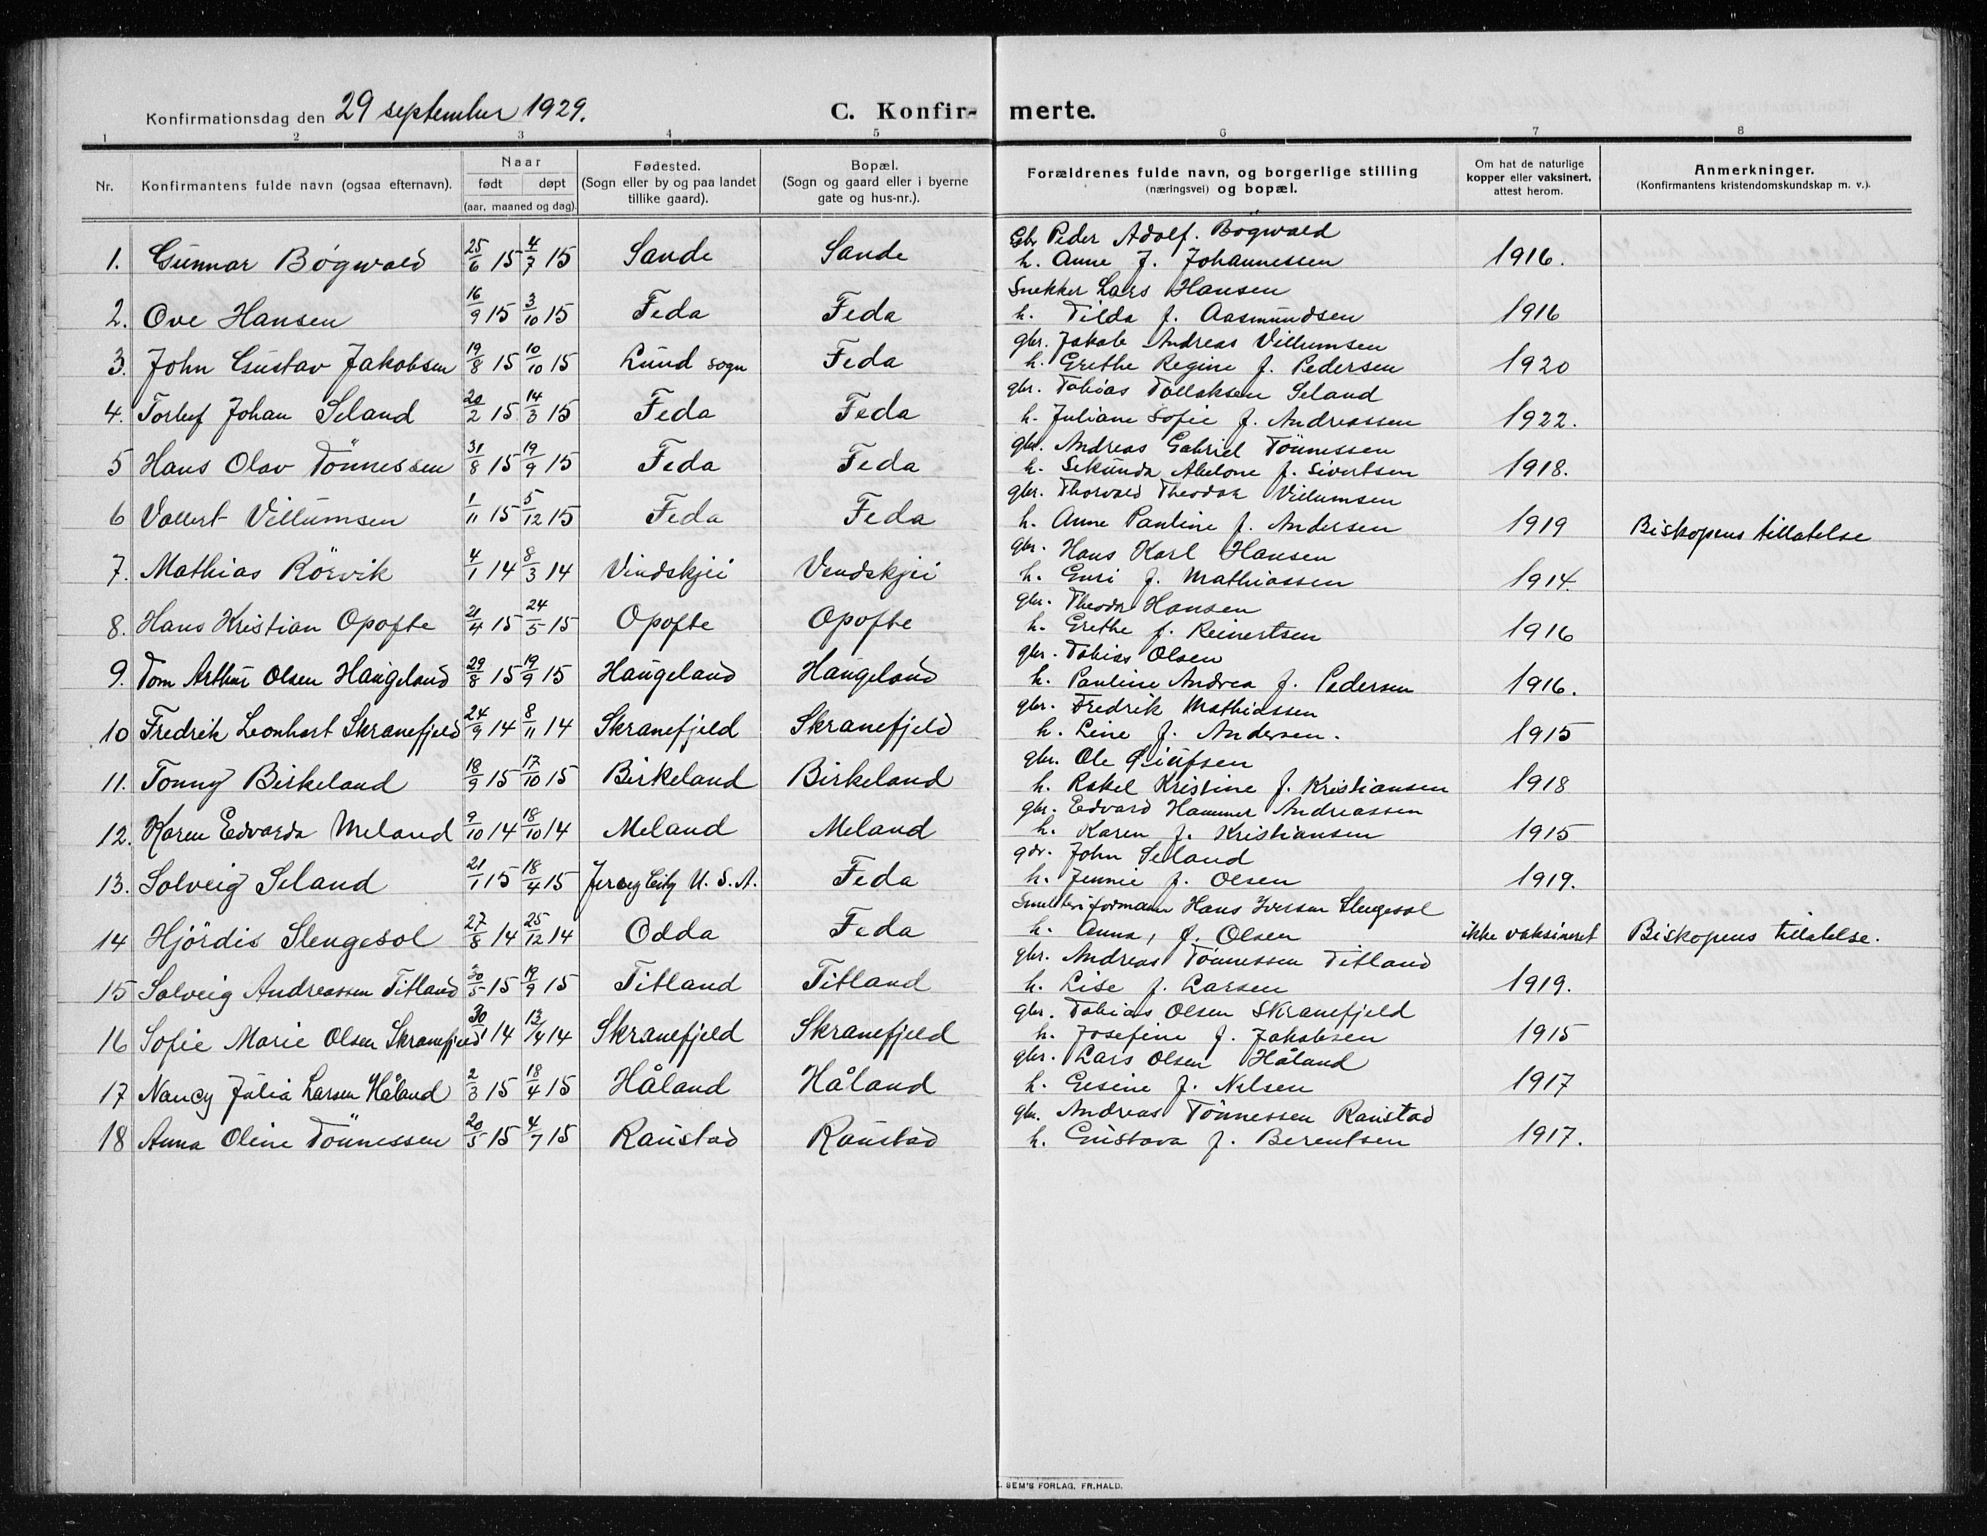 Konfirmationsdag den 29 september 1929. C. Konfir- merte.
1 2 3 4 5 6 7 8
Nr. Konfirmantens fulde navn (ogsaa efternavn). Naar født døpt (aar, maaned og dag). Fødested. (Sogn eller by og paa landet tillike gaard). Bopæl. (Sogn og gaard eller i byerne gate og hus-nr.). Forældrenes fulde navn, og borgerlige stilling (næringsvei) og bopæl. Om hat de naturlige kopper eller vaksinert, attest herom. Anmerkninger. (Konfirmantens kristendomskundskap m. v.).
Gbr Peder Adolf. Bögwald
1. Gunnar Bögwald 25/6 15 4/7 15 Sande Sande h. Anne J. Johannessen 1916.
Snekker Lars Hansen
2. Ove Hansen 16/9 15 3/10 15 Feda Feda h. Tilda f. Aasmundsen 1916
gbr. Jakob Andreas Villumsen
3. John Gustav Jakobsen 19/8 15 10/10 15 Lund sogn Feda h. Grethe Regine f. Pedersen 1920
gbr. Tobias Tollaksen Seland
4. Torlef Johan Seland 20/2 15 14/3 15 Feda Feda h. Juliane Sofie f. Andreassen 1922.
gbr. Andreas Gabriel Tönnessen
5 Hans Olav Tönnessen 31/8 15 19/9 15 Feda Feda h. Sekunda Abelone f. Sivertsen 1918.
gbr. Thorvald Theodor Villumsen
6 Vallert Villumsen 1/11 15 5/12 15 Feda Feda h. Anne Pauline f. Andersen 1919 Biskopens tillatelse
gbr. Hans Karl Hansen
7. Mathias Rörvik 4/1 14 8/3 14 Vindskjei Vendskjei h. Guri f. Mathiassen 1914.
gbr. Theodor Hansen
8. Hans Kristian Opofte 21/4 15 24/5 15 Opofte Opofte h. Grethe f. Reinertsen 1916
gbr. Tobias Olsen
9. Tom Arthur Olsen Haugeland 29/8 15 19/9 15 Haugeland Haugeland h. Pauline Andrea f. Pedersen 1916.
gbr. Fredrik Mathiassen
10 Fredrik Leonhart Skranefjeld 24/9 14 8/11 14 Skranefjeld Skranefjeld h. Line f. Andersen. 1915
gbr. Ole
11. Tonny Birkeland 18/9 15 17/10 15 Birkeland Birkeland h. Rakel Kristine f. Kristiansen 1918
gbr. Edvard Hammer Andreassen
12. Karen Edvarda Meland 9/10 14 18/10 14 Meland Meland h. Karen f. Kristiansen 1915
gbr. John Seland
13. Solveig Seland 21/1 15 18/4 15 Jersey City U. S. A. Feda h. Jennie f. Olsen 1919.
Smelteriformann Hans Iversen Slengesol
14 Hjördis Slengesol 27/8 14 25/12 14 Odda Feda h. Anna, f. Olsen ikke vaksineret Biskopens tillatelse.
gbr. Andreas Tönnessen Titland
15 Solveig Andreassen Titland 30/5 15 19/9 15 Titland Titland h. Lise f. Larsen 1919.
gbr. Tobias Olsen Skranefjeld
16 Sofie Marie Olsen Skranefjeld 30/1 14 13/4 14 Skranefjeld Skranefjeld h. Josefine f. Jakobsen 1915
gbr. Lars Olsen Håland
17 Nancy Julia Larsen Håland 2/3 15 18/4 15 Håland Håland h. Gesine f. Nelsen 1917
gbr. Andreas Tönnessen Raustad
18 Anna Oline Tönnessen 20/5 15 4/7 15 Raustad Raustad h. Gustava f. Berentsen 1917.
SEM'S FORLAG, FR.HALD.